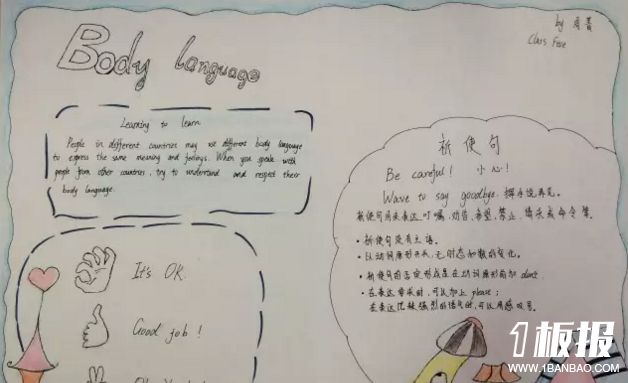 Body language
by
Class Five
Learning to learn
People in different countries may use different body language
to express the same meaning and feelings. When you speak with
people from other countries, try to understand and respect their
body language.
It's OK
Good job!
祈使句
Be careful! 小心!
Wave to say goodbye. 挥手说再见。
祈使句用来表达叮嘱,劝告,希望,禁止,请求或命令等。
·祈使句没有主语。
·以动词原形开头,无时态和数的变化。
·祈使句的否定形式是在动词原形前加 don't.
·在表达请求时,可以加上 please;
在表达比较强烈的语气时,可以用感叹号。
1板报
WWW.1BANBAO.COM